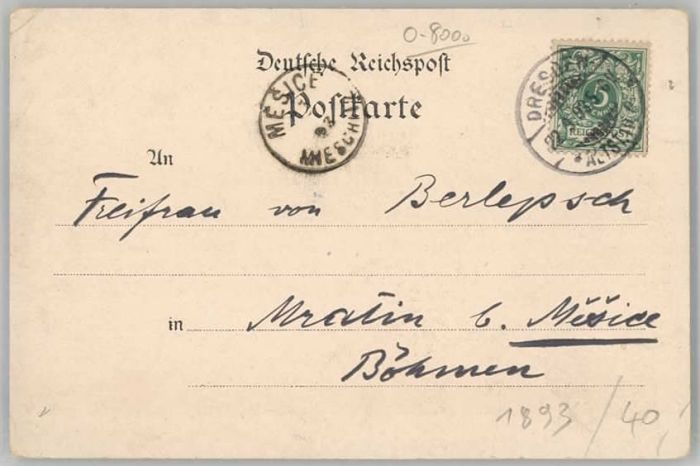 0-8000
Deutsche Reichspost
Postkarte
MĚŠICE
93
MIESCHITZ
DRESDEN
ALTSTADT
5
An
Freifrau von Berlepsch
in Mratin b. Měšice
Böhmen
1893/40,